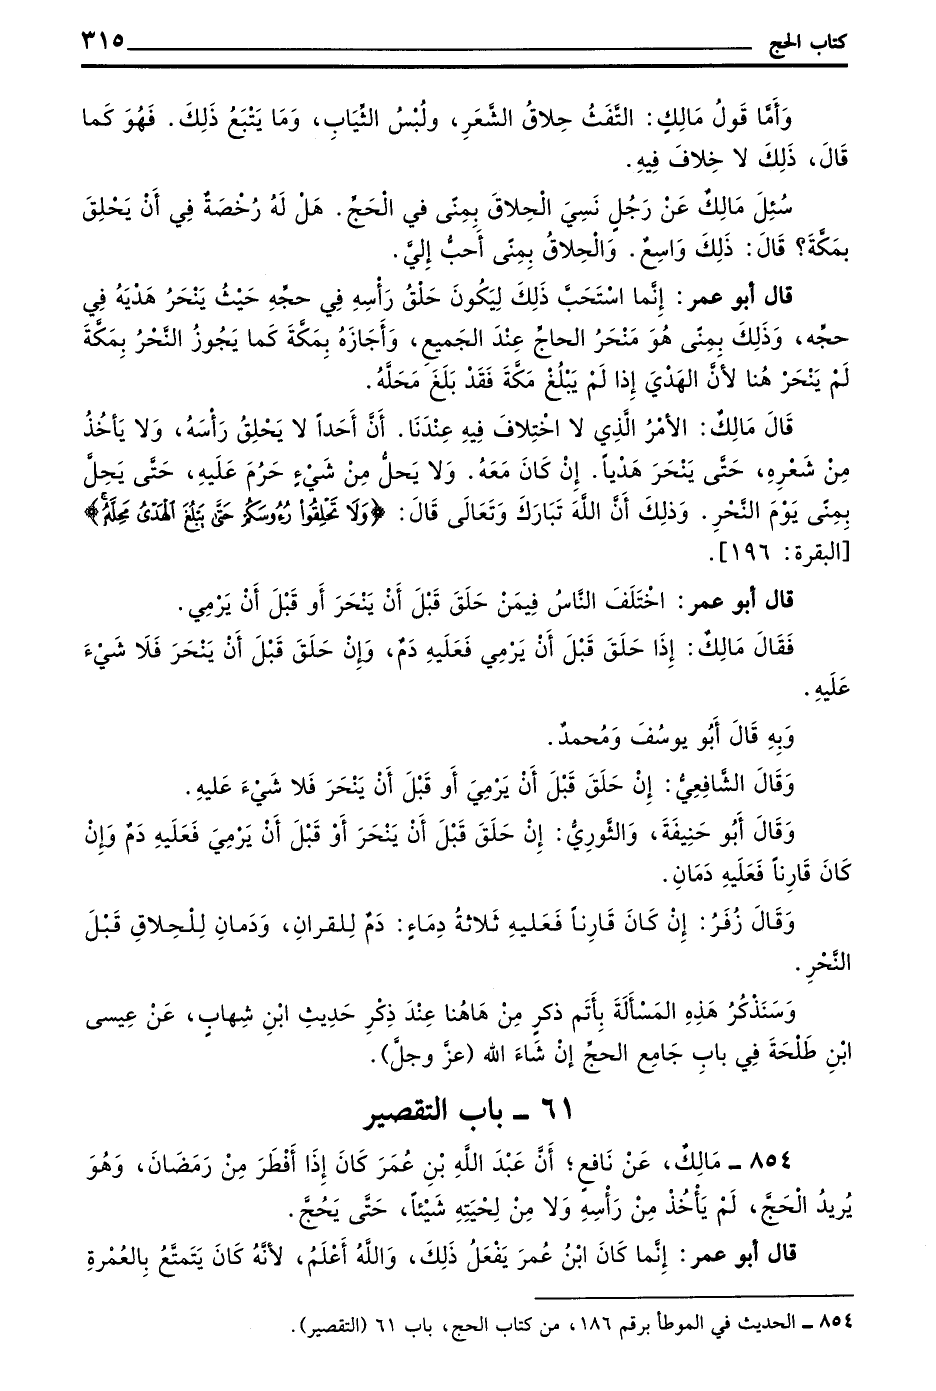 كتاب الحج ٣١٥
وَأَمَّا قَولُ مَالِكٍ: التَّفَثُ حِلاقُ الشَّعَرِ، ولُبْسُ الثِّيَابِ، وَمَا يَتْبَعُ ذَلِكَ. فَهُوَ كَما
قَالَ، ذَلِكَ لا خِلافَ فِيهِ.
سُئِلَ مَالِكٌ عَنْ رَجُلٍ نَسِيَ الْحِلاقَ بِمِنًى في الْحَجِّ. هَلْ لَهُ رُخْصَةٌ فِي أَنْ يَحْلِقَ
بِمَكَّةَ؟ قَالَ: ذَلِكَ وَاسِعٌ. وَالْحِلاقُ بِمِنًى أَحبُّ إِليَّ.
قال أبو عمر: إِنَّما اسْتَحَبَّ ذَلِكَ لِيَكُونَ حَلْقُ رَأْسِهِ فِي حجِّهِ حَيْثُ يَنْحَرُ هَدْيَهُ فِي
حجِّه، وَذَلِكَ بِمِنًى هُوَ مَنْحَرُ الحاجِّ عِنْدَ الجَميعِ، وَأَجَازَهُ بِمَكَّةَ كَما يَجُوزُ النَّحْرُ بِمَكَّةَ
لَمْ يَنْحَرْ هُنا لأنَّ الهَدْيَ إِذا لَمْ يَبْلُغْ مَكَّةَ فَقَدْ بَلَغَ مَحَلَّهُ.
قَالَ مَالِكٌ: الأمْرُ الَّذِي لا اخْتِلافَ فِيهِ عِنْدَنَا. أَنَّ أَحَداً لا يَحْلِقُ رَأْسَهُ، وَلا يَأخُذُ
مِنْ شَعْرِهِ، حَتَّى يَنْحَرَ هَدْياً. إِنْ كَانَ مَعَهُ. وَلا يَحلُّ مِنْ شَيْءٍ حَرُمَ عَلَيهِ، حَتَّى يَحِلَّ
بِمِنًى يَوْمَ النَّحْرِ. وَذلِكَ أَنَّ اللَّهَ تَبَارَكَ وَتَعَالَى قَالَ: ﴿وَلَا تَحْلِقُوا۟ رُءُوسَكُمْ حَتَّىٰ يَبْلُغَ ٱلْهَدْىُ مَحِلَّهُۥ﴾
[البقرة: ١٩٦].
قال أبو عمر: اخْتَلَفَ النَّاسُ فِيمَنْ حَلَقَ قَبْلَ أَنْ يَنْحَرَ أَو قَبْلَ أَنْ يَرْمِي.
فَقَالَ مَالِكٌ: إِذَا حَلَقَ قَبْلَ أَنْ يَرْمِي فَعَلَيهِ دَمٌ، وَإِنْ حَلَقَ قَبْلَ أَنْ يَنْحَرَ فَلَا شَيْءَ
عَلَيهِ.
وَبِهِ قَالَ أَبُو يوسُفَ وَمُحمدٌ.
وَقَالَ الشَّافِعِيُّ: إِنْ حَلَقَ قَبْلَ أَنْ يَرْمِيَ أَو قَبْلَ أَنْ يَنْحَرَ فَلا شَيْءَ عَليهِ.
وَقَالَ أَبُو حَنِيفَةَ، وَالثَّورِيُّ: إِنْ حَلَقَ قَبْلَ أَنْ يَنْحَرَ أَوْ قَبْلَ أَنْ يَرْمِيَ فَعَلَيهِ دَمٌ وَإِنْ
كَانَ قَارِناً فَعَلَيهِ دَمَانِ.
وَقَالَ زُفَرُ: إِنْ كَانَ قَارِناً فَعَليهِ ثَلاثةُ دِماءٍ: دَمٌ لِلقرانِ، وَدَمانِ لِلْحِلاقِ قَبْلَ
النَّحْرِ.
وَسَنَذْكُرُ هَذِهِ المَسْأَلَةَ بِأَتَم ذكرٍ مِنْ هَاهُنا عِنْدَ ذِكْرِ حَدِيثِ ابْنِ شِهابٍ، عَنْ عِيسى
ابْنِ طَلْحَةَ فِي بابِ جَامِعِ الحجِّ إِنْ شَاءَ الله (عزَّ وجلَّ).
٦١ ـ باب التقصير
٨٥٤ ـ مَالِكٌ، عَنْ نَافعٍ؛ أَنَّ عَبْدَ اللَّهِ بْنِ عُمَرَ كَانَ إِذَا أَفْطَرَ مِنْ رَمَضَانَ، وَهُوَ
يُرِيدُ الْحَجَّ، لَمْ يَأْخُذْ مِنْ رَأْسِهِ وَلا مِنْ لِحْيَتِهِ شَيْئاً، حَتَّى يَحُجَّ.
قال أبو عمر: إِنَّما كَانَ ابْنُ عُمرَ يَفْعَلُ ذَلِكَ، وَاللَّهُ أَعْلَمُ، لأنَّهُ كَانَ يَتَمتَّعُ بِالعُمْرةِ
٨٥٤ ـ الحديث في الموطأ برقم ١٨٦، من كتاب الحج، باب ٦١ (التقصير).